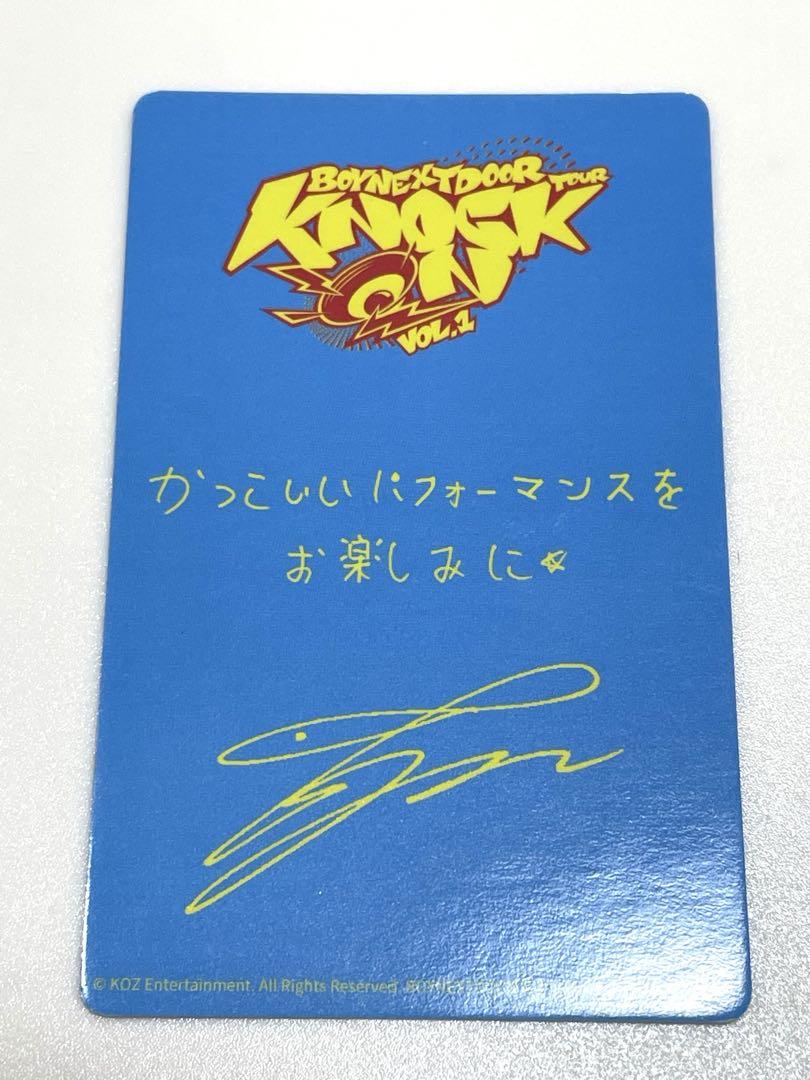 BOYNEXTDOOR TOUR
KNOCK
ON
VOL.1
かっこいいパフォーマンスを
お楽しみに☆
© KOZ Entertainment. All Rights Reserved.